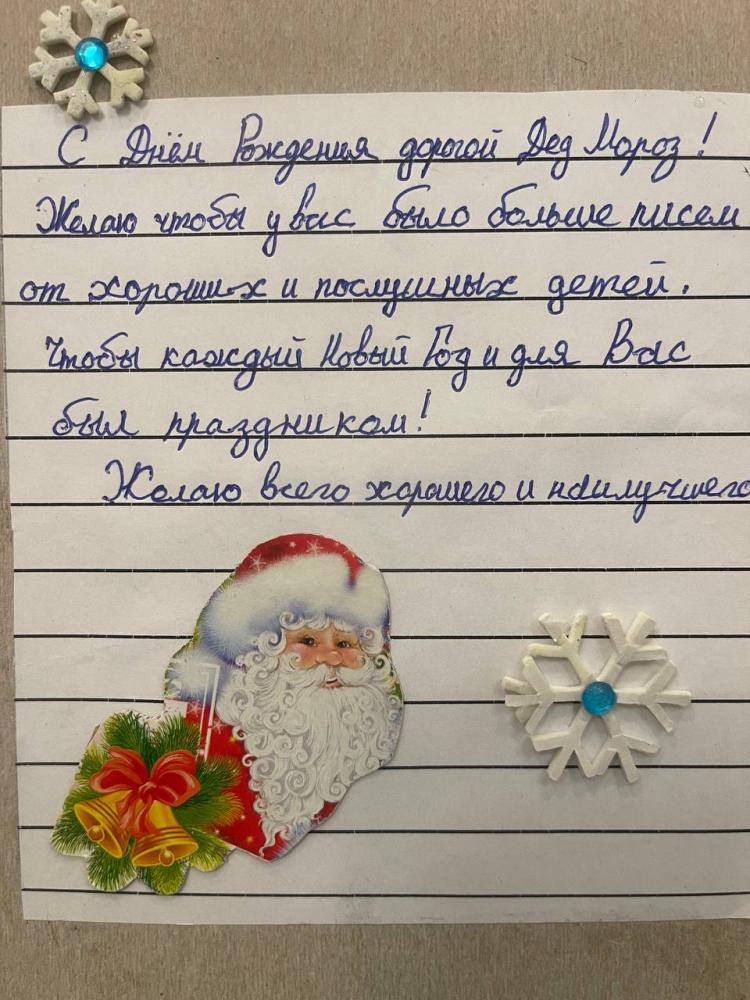 С Днём Рождения дорогой Дед Мороз!
Желаю чтобы у вас было больше писем
от хороших и послушных детей.
Чтобы каждый Новый Год и для Вас
был праздником!
Желаю всего хорошего и наилучшего